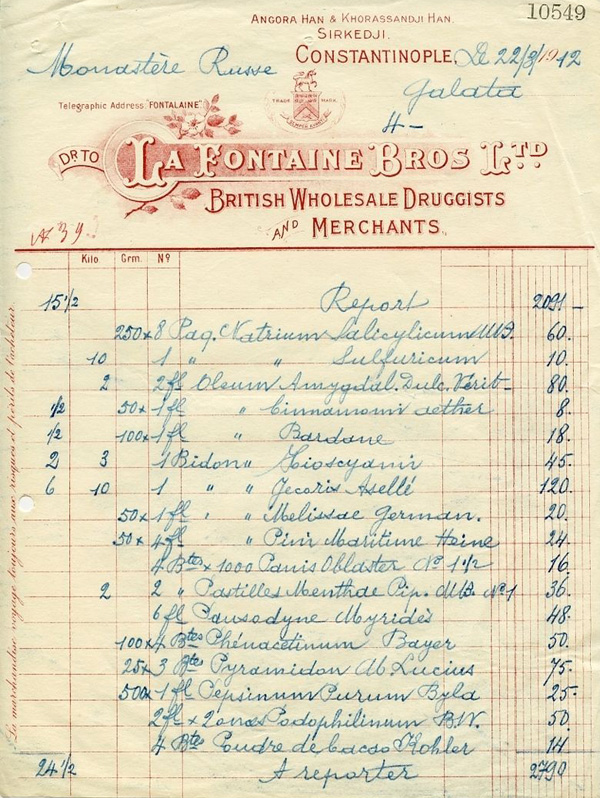 10549
ANGORA HAN & KHORASSANDJI HAN.
SIRKEDJI.
CONSTANTINOPLE, Le 22/3/1912
Monastère Russe
Galata
Telegraphic Address "FONTALAINE".
TRADE MARK
4-
DR TO LA FONTAINE BROS LTD
BRITISH WHOLESALE DRUGGISTS
AND MERCHANTS.
Kilo Grm. No
15 1/2 Report 2091 -
250 x 8 Paq. Natrium Salicylicum 60.
10 1 " " Sulfuricum 10.
2 2 fl Oleum Amygdal. Dulc. Verit- 80.
1/2 50 x 1 fl " Cinnamomi aether 8.
1/2 100 x 1 fl " Bardane 18.
2 3 1 Bidon " Hioscyami 45.
6 10 1 " " Jecoris Asellé 120.
50 x 1 fl " " Melissae German. 20.
50 x 4 fl " Pini Maritime Heine 24
4 Btes x 1000 Panis Oblaster No 1 1/2 16.
2 2 " Pastilles Menthae Pip. No 1 36.
6 fl Pausodyne Myridès 48.
100 x 4 Btes Phénacetinum Bayer 50.
25 x 3 Btes Pyramidon M. Lucius 75.
500 x 1 fl Pepsinum Purum Byla 25-
2 fl x 2 onces Podophilinum B.W. 50
4 Btes Poudre de cacao Kohler 14
24 1/2 A reporter 2790
La marchandise voyage toujours aux risques et périls de l'acheteur.